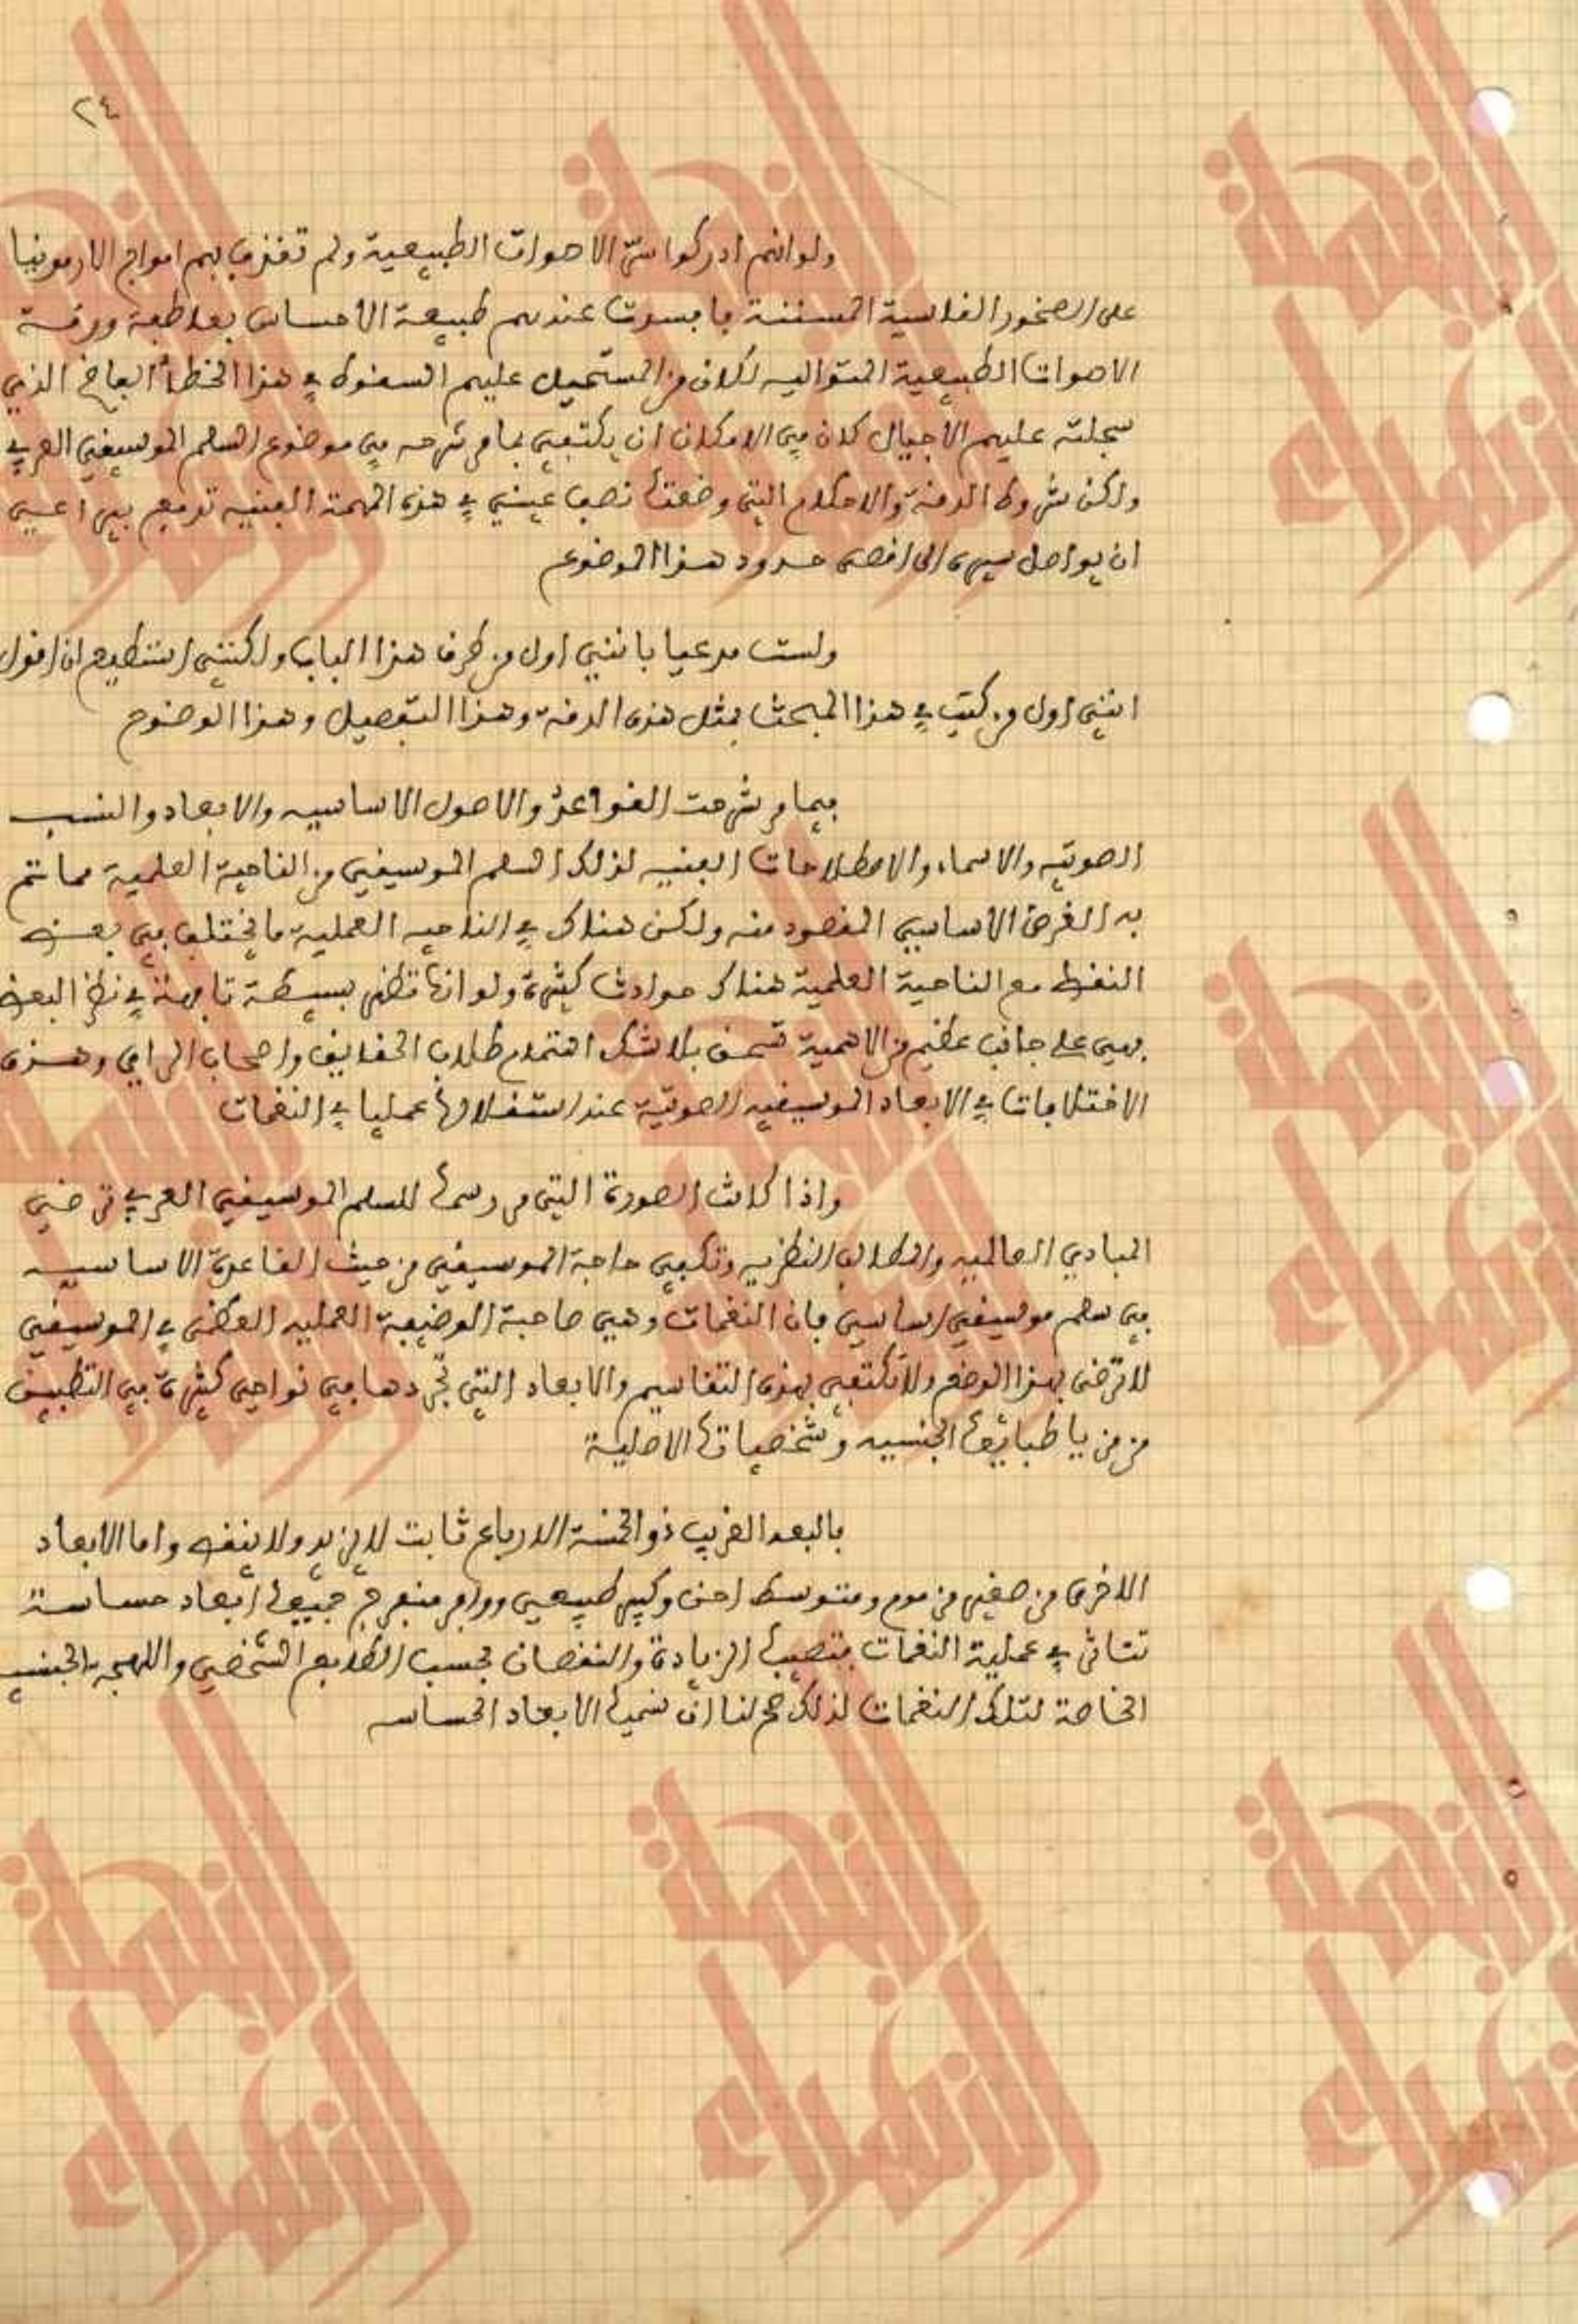 ٢٤
ولو انهم ادركوا سر الاصوات الطبيعية ولم تقذف بهم امواج الارمونيا
على الصخور القاسية المسننة فافسدت عندهم طبيعة الاحساس بعاطفة ورقة
الاصوات الطبيعية المتواليه لكان من المستحيل عليهم السقوط في هذا الخطأ الفاضح الذي
سجلته عليهم الأجيال كان في الامكان ان يكتفي بما مر شرحه في موضوع السلم الموسيقي العربي
ولكن شروط الدقة والاحكام التي وضعتها نصب عيني في هذه المهمة الفنيه تدفع بي
ان يواصل سيره الى اقصى حدود هذا الموضوع
ولست مدعيا بانني اول من طرق هذا الباب ولكنني استطيع ان اقول
انني اول من كتب في هذا المبحث بمثل هذه الدقة وهذا التفصيل وهذا الوضوح
فيما مر شرحت القواعد والاصول الاساسيه والابعاد والنسب
الصوتيه والاسماء والاصطلاحات الفنيه لذلك السلم الموسيقي من الناحية العلمية مما تم
به الغرض الاساسي المقصود منه ولكن هناك في الناحيه العملية ما يختلف في بعض
النقط مع الناحية العلمية هناك حوادث كثيرة ولو انها تظهر بسيطة تافهة في نظر البعض
فهي على جانب عظيم من الاهمية تستحق بلا شك اهتمام طلاب الحقايق واصحاب الراي وهذه
الاختلافات في الابعاد الموسيقيه الصوتية عند استغلالها عمليا في النغمات
واذا كانت الصورة التي مر رسمها للسلم الموسيقي العربي ترضي
المبادي العالميه والمطالب النظريه وتكفي حاجة الموسيقي من حيث القاعدة الاساسيه
في سلم موسيقي اساسي فان النغمات وهي صاحبة الوضيفة العمليه العظمى في الموسيقي
لا ترضى بهذا الوضع ولا تكتفي بهذه التقاسيم والابعاد التي تجردها في نواحي كثيرة في التطبيق
من مزيا طبائعها الجنسيه وشخصياتها الاصلية
فالبعد الغريب ذو الخمسة الارباع ثابت لا يزيد ولا ينقص واما الابعاد
الاخرى من صغير مزموم ومتوسط احن وكبير طبيعي ووافر منفرج جميعها ابعاد حساسة
تتاثر في عملية النغمات فتصيبها الزيادة والنقصان بحسب الطابع الشخصي واللهجه الجنسيه
الخاصة لتلك النغمات لذلك صح لنا ان نسميها الابعاد الحساسه
النهضة
الزهراء